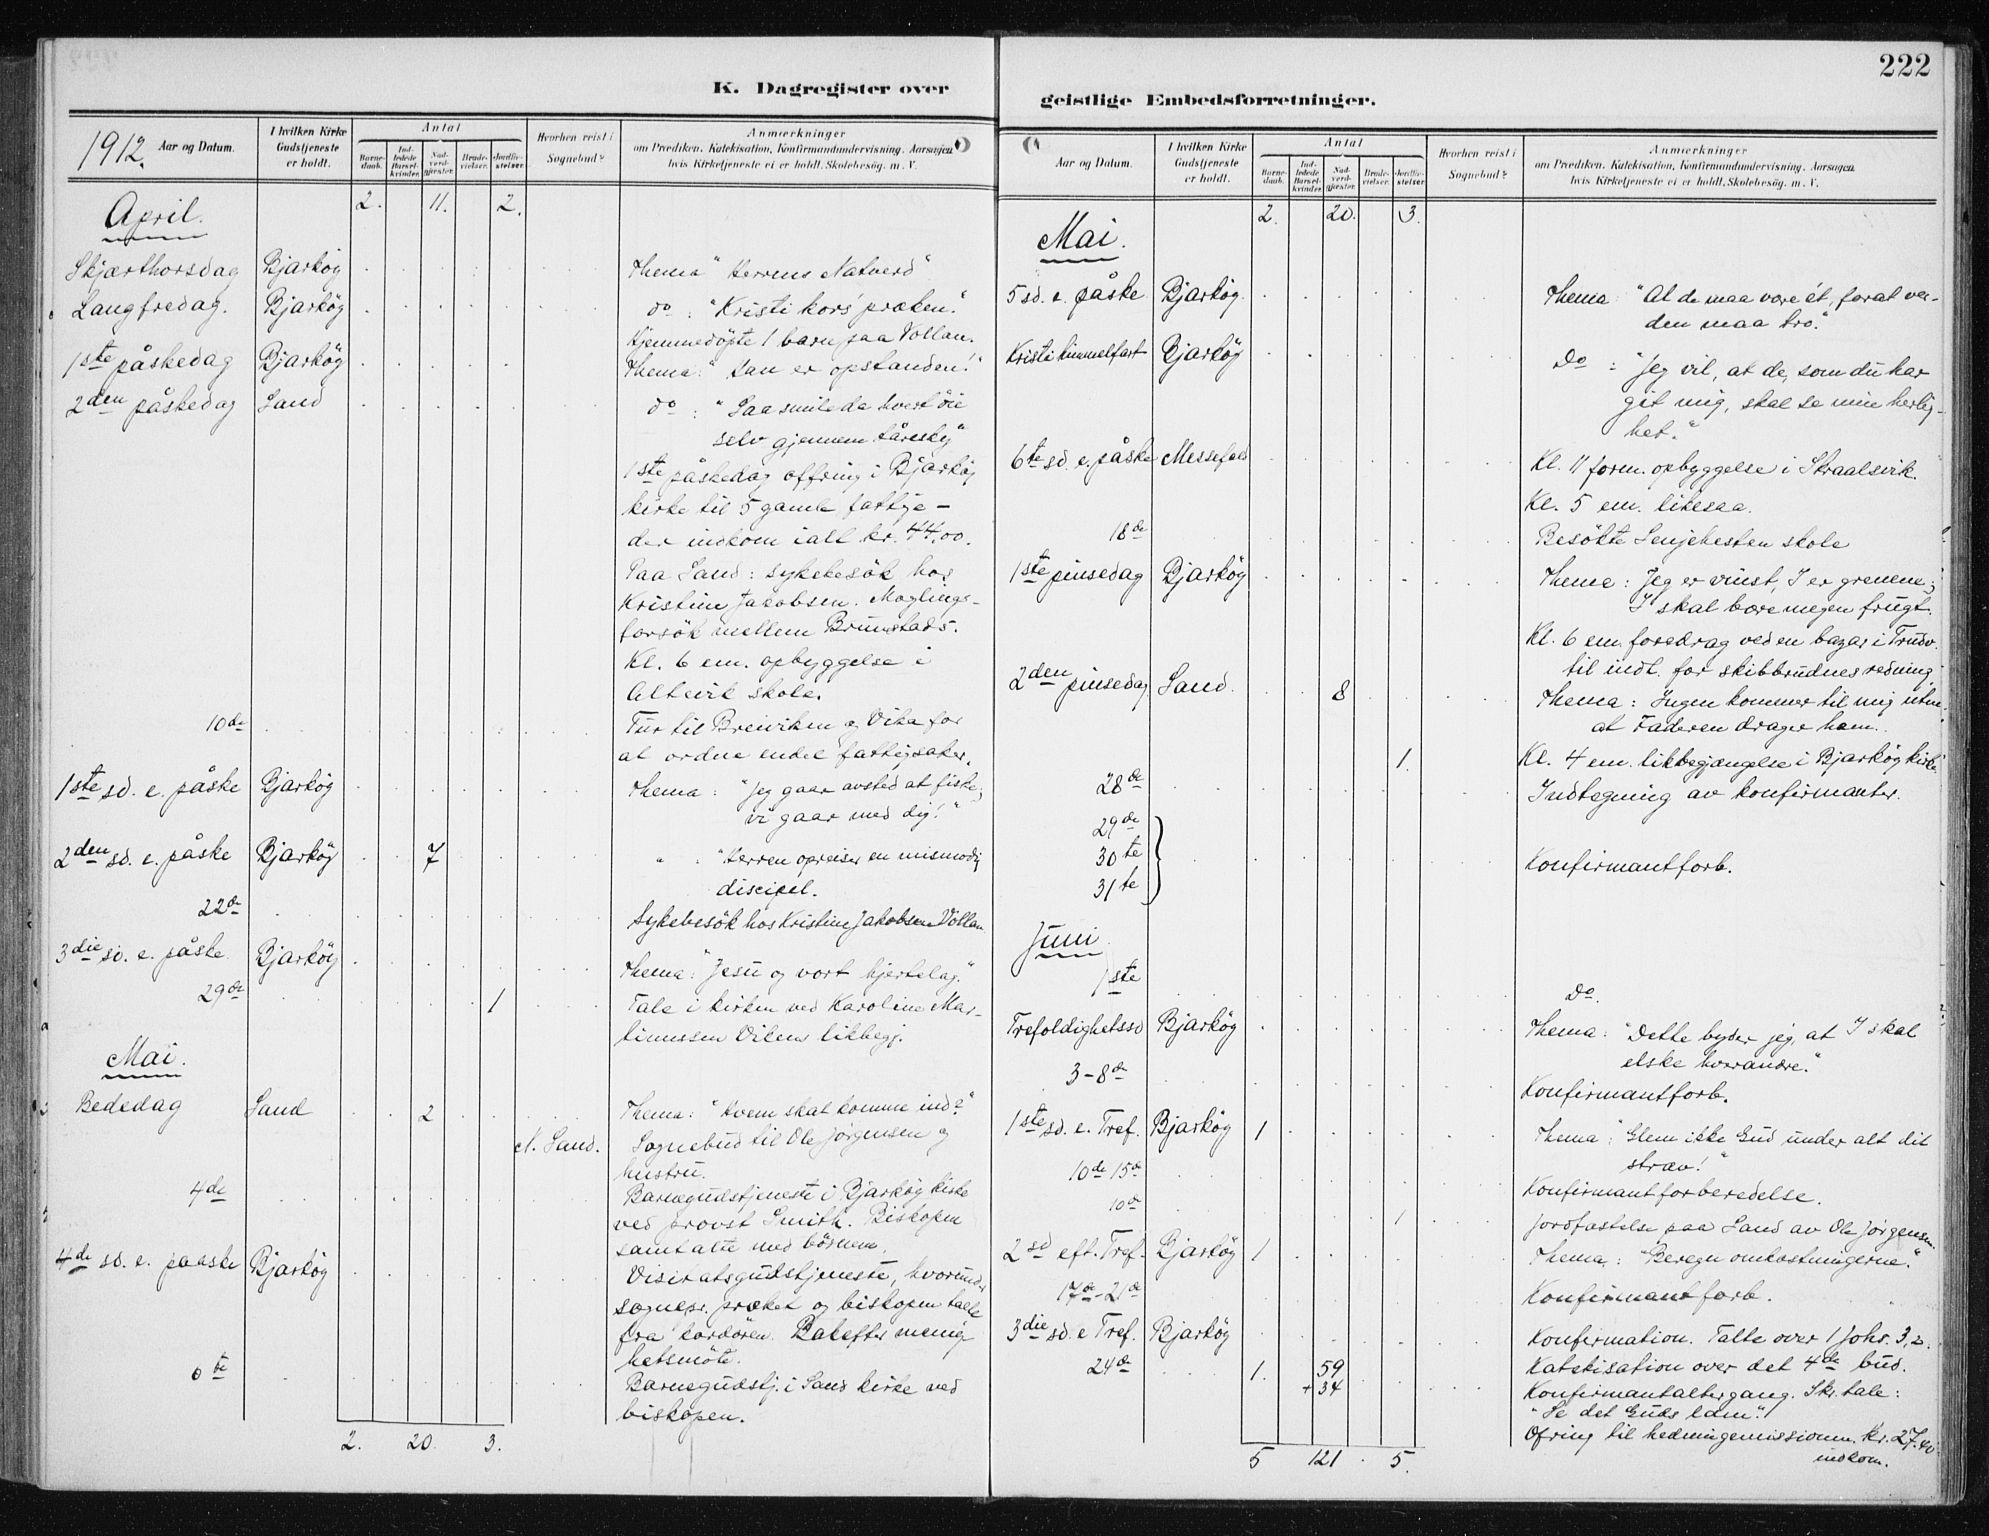 222
K. Dagregister over
geistlige Embedsforretninger.
1912. Aar og Datum.
I hvilken Kirke Gudstjeneste er holdt.
Antal
Barnedaab.
Indledede Barselkvinder.
Nadverdgjester.
Brudevielser.
Jordfæstelser.
Hvorhen reist i Sognebud?
Anmærkninger
om Prædiken, Katekisation, Konfirmandundervisning, Aarsagen,
hvis Kirketjeneste ei er holdt, Skolebesøg. m. V.
April. 2. 11. 2.
Skjærthorsdag Bjarköy Thema "Herrens Natverd"
Langfredag. Bjarköy do : "Kristi kors' præken."
Hjemmedöpte 1 barn paa Vollan.
1ste påskedag Bjarköy Thema: "Han er opstanden!"
2den påskedag Sand do : "Saa smile da hvert öie
selv gjennem tåresky"
1ste påskedag offring i Bjarköy
kirke til 5 gamle fattige –
der indkom ialt kr. 44.00.
Paa Sand: sykebesök hos
Kristine Jakobsen. Mæglings-
forsök mellem Brunstads.
Kl. 6 em. opbyggelse i
Altevik skole.
10de Tur til Breiviken og Vika for
at ordne endel fattigsaker.
1ste sd. e. påske Bjarköy Thema : "Jeg gaar avsted at fiske;
vi gaar med dig!"
2den sd. e. påske Bjarköy 7 " : "Herren opreiser en mismodig
discipel.
22de Sykebesök hos Kristine Jakobsen Vollan
3die sd. e. påske Bjarköy Thema: "Jesu og vort hjertelag."
29de 1 Tale i kirken ved Karoline Mar-
tinussen Vikens likbegj.
Mai.
Bededag Sand 2 Thema: "Hvem skal komme ind?"
N. Sand. Sognebud til Ole Jörgensen og
hustru.
4de Barnegudstjeneste i Bjarköy kirke
ved provst Smith. Biskopen
samtalte med börnene.
4de sd. e. paaske Bjarköy Visitatsgudstjeneste, hvorunder
sognepr. præket og biskopen talte
fra kordören. Bakefter menig-
hetsmöte.
6te Barnegudstj. i Sand kirke ved
biskopen.
2. 20. 3.
Aar og Datum.
I hvilken Kirke Gudstjeneste er holdt.
Antal
Barnedaab.
Indledede Barselkvinder.
Nadverdgjester.
Brudevielser.
Jordfæstelser.
Hvorhen reist i Sognebud?
Anmærkninger
om Prædiken, Katekisation, Konfirmandundervisning, Aarsagen,
hvis Kirketjeneste ei er holdt, Skolebesøg. m. V.
Mai. 2. 20. 3.
5 sd. e. påske Bjarköy. Thema: "At de maa være ét, forat ver-
den maa tro."
Kristi himmelfart Bjarköy Do : "Jeg vil, at de, som du har
git mig, skal se min herlig-
het."
6te sd. e. påske Messefald Kl. 11 form. opbyggelse i Skraalsvik.
Kl. 5 em. likesaa.
18de Besökte Senjehesten skole
1ste pinsedag Bjarköy Thema : Jeg er vintr., I er grenene;
I skal bære megen frugt.
Kl. 6 em. foredrag ved en bazar i Trudv.
til indt. for skibbrudnes redning.
2den pinsedag Sand. 8 Thema : Ingen kommer til mig uten
at Faderen drager ham.
1. Kl. 4 em. likbegjængelse i Bjarköy kirke.
28de Indtegning av konfirmanter.
29de
30te Konfirmantforb.
31te
Juni.
1ste Do.
Trefoldighetssd Bjarköy Thema: "Dette byder jeg, at I skal
elske hverandre."
3–8de Konfirmantforb.
1ste sd. e. Tref. Bjarköy 1 Thema: "Glem ikke Gud under alt dit
stræv!"
10de 15de Konfirmantforberedelse.
10de 1 Jordfæstelse paa Sand av Ole Jörgensen.
2 sd eft. Tref. Bjarköy 1 Thema: "Beregn omkostningerne."
17de–21de Konfirmantforb.
3die sd. e Tref. Bjarköy Konfirmation. Talte over 1 Johs. 3,2.
24de 1. 59 Katekisation over det 4de bud.
+ 34 Konfirmantaltergang. Skr. tale:
"Se det Guds lam".
Ofring til hedningemissionen. Kr. 27.40
indkom.
5 121 5.